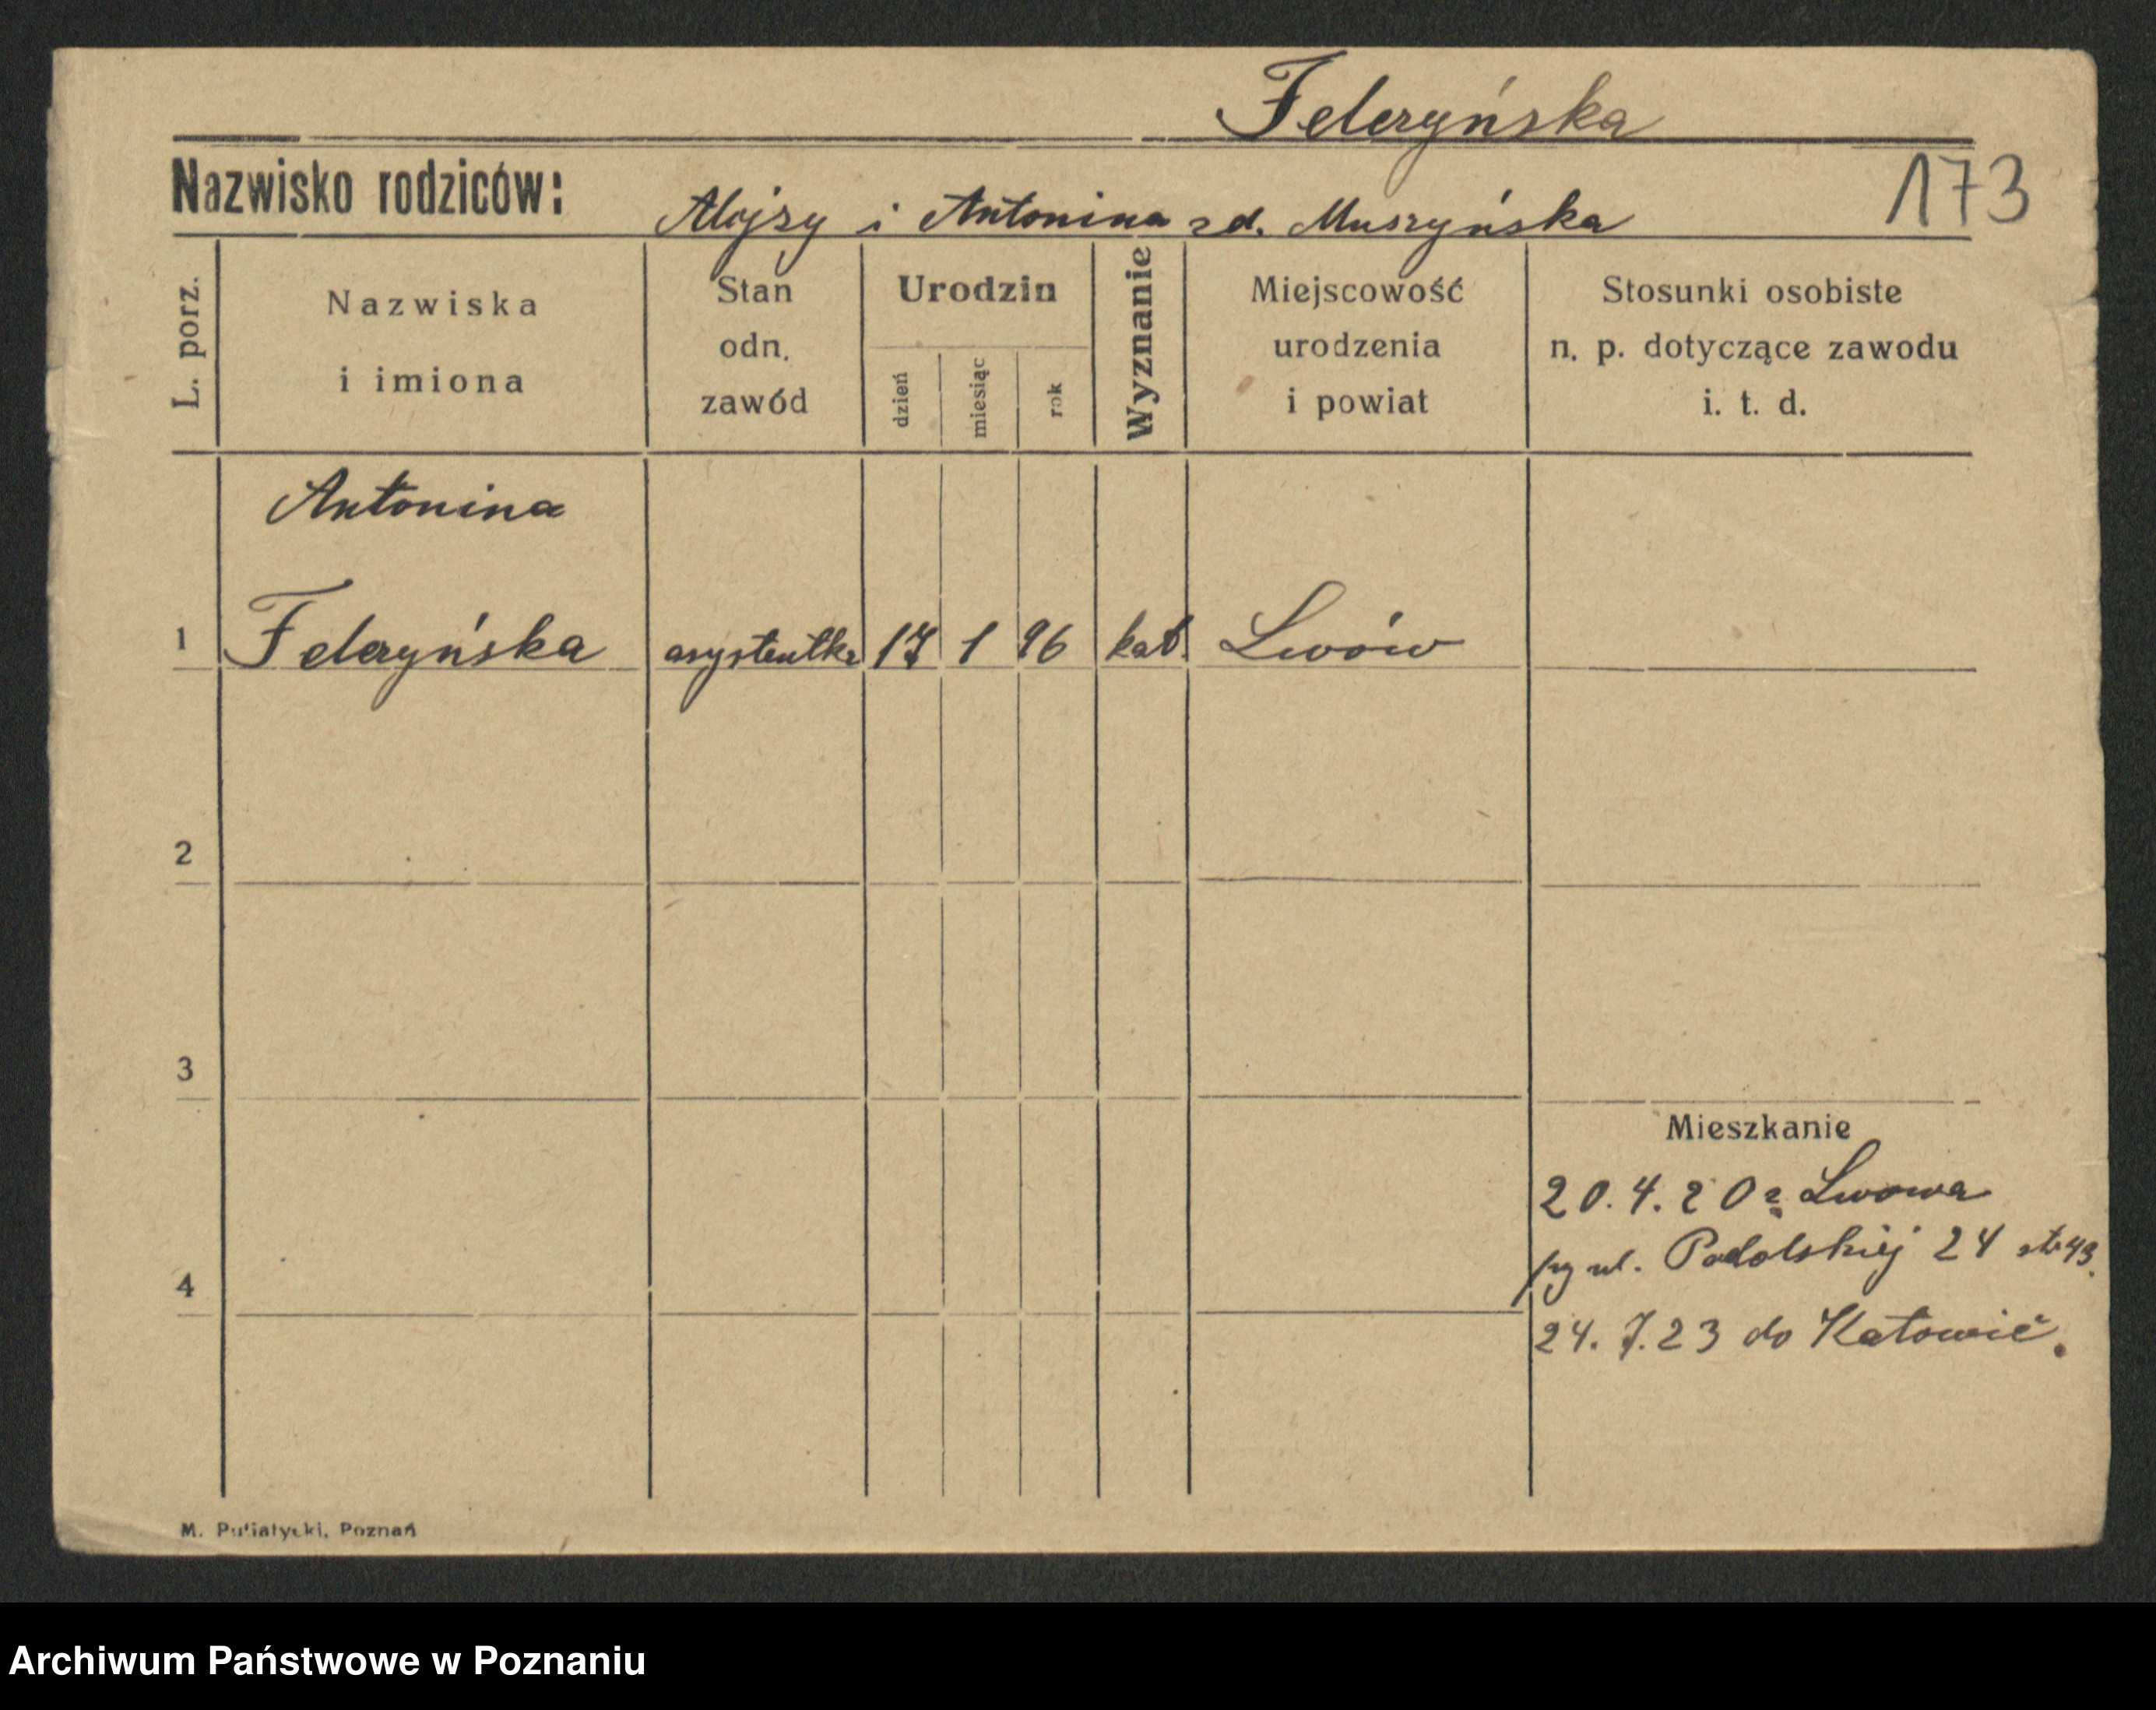 Felczyńska
173
Nazwisko rodziców: Alojzy i Antonina zd. Muszyńska
L. porz.
Nazwiska
i imiona
Stan
odn.
zawód
Urodzin
dzień
miesiąc
rok
Wyznanie
Miejscowość
urodzenia
i powiat
Stosunki osobiste
n. p. dotyczące zawodu
i. t. d.
Antonina
1 Felczyńska asystentka 17 1 96 kat. Lwów
2
3
Mieszkanie
20. 4. 20 z Lwowa
ul. Podolskiej 24
4
24. 7. 23 do Katowic.
M. Putiatycki, Poznań
Archiwum Państwowe w Poznaniu